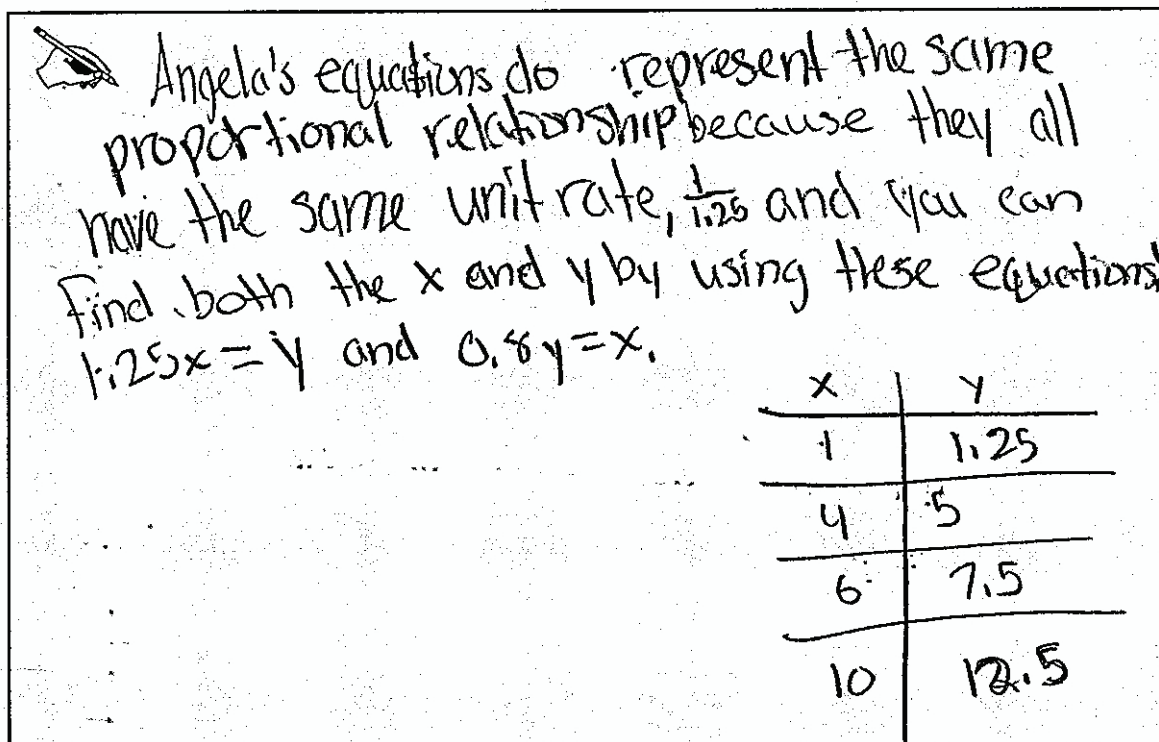 Angela's equations do represent the same
proportional relationship because they all
have the same unit rate, 1/1.25 and you can
find both the x and y by using these equations:
1.25x = y and 0.8y = x.
x | y
1 | 1.25
4 | 5
6 | 7.5
10 | 12.5